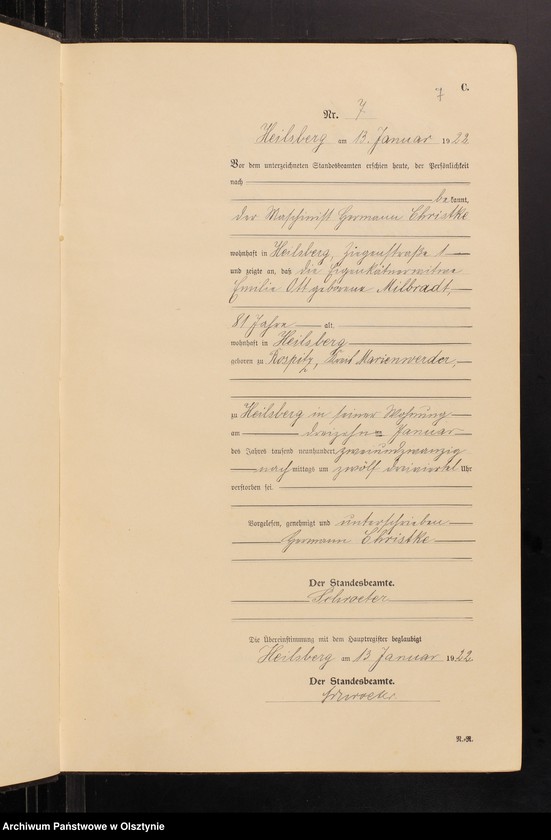 7 C.
Nr. 7
Heilsberg am 13. Januar 1922
Vor dem unterzeichneten Standesbeamten erschien heute, der Persönlichkeit
nach
bekannt,
der Maschinist Hermann Christke
wohnhaft in Heilsberg, Ziegenstraße 1
und zeigte an, daß die Eigenkätnerwitwe
Emilie Ott geborene Milbradt,
81 Jahre alt,
wohnhaft in Heilsberg
geboren zu Rospitz, Kreis Marienwerder,
zu Heilsberg in seiner Wohnung
am dreizehn= Januar
des Jahres tausend neunhundert zweiundzwanzig
nachmittags um zwölf dreiviertel Uhr
verstorben sei.
Vorgelesen, genehmigt und unterschrieben
Hermann Christke
Der Standesbeamte.
Schroeter
Die Übereinstimmung mit dem Hauptregister beglaubigt
Heilsberg am 13 Januar 1922
Der Standesbeamte.
Schroeter
N.-R.
Archiwum Państwowe w Olsztynie